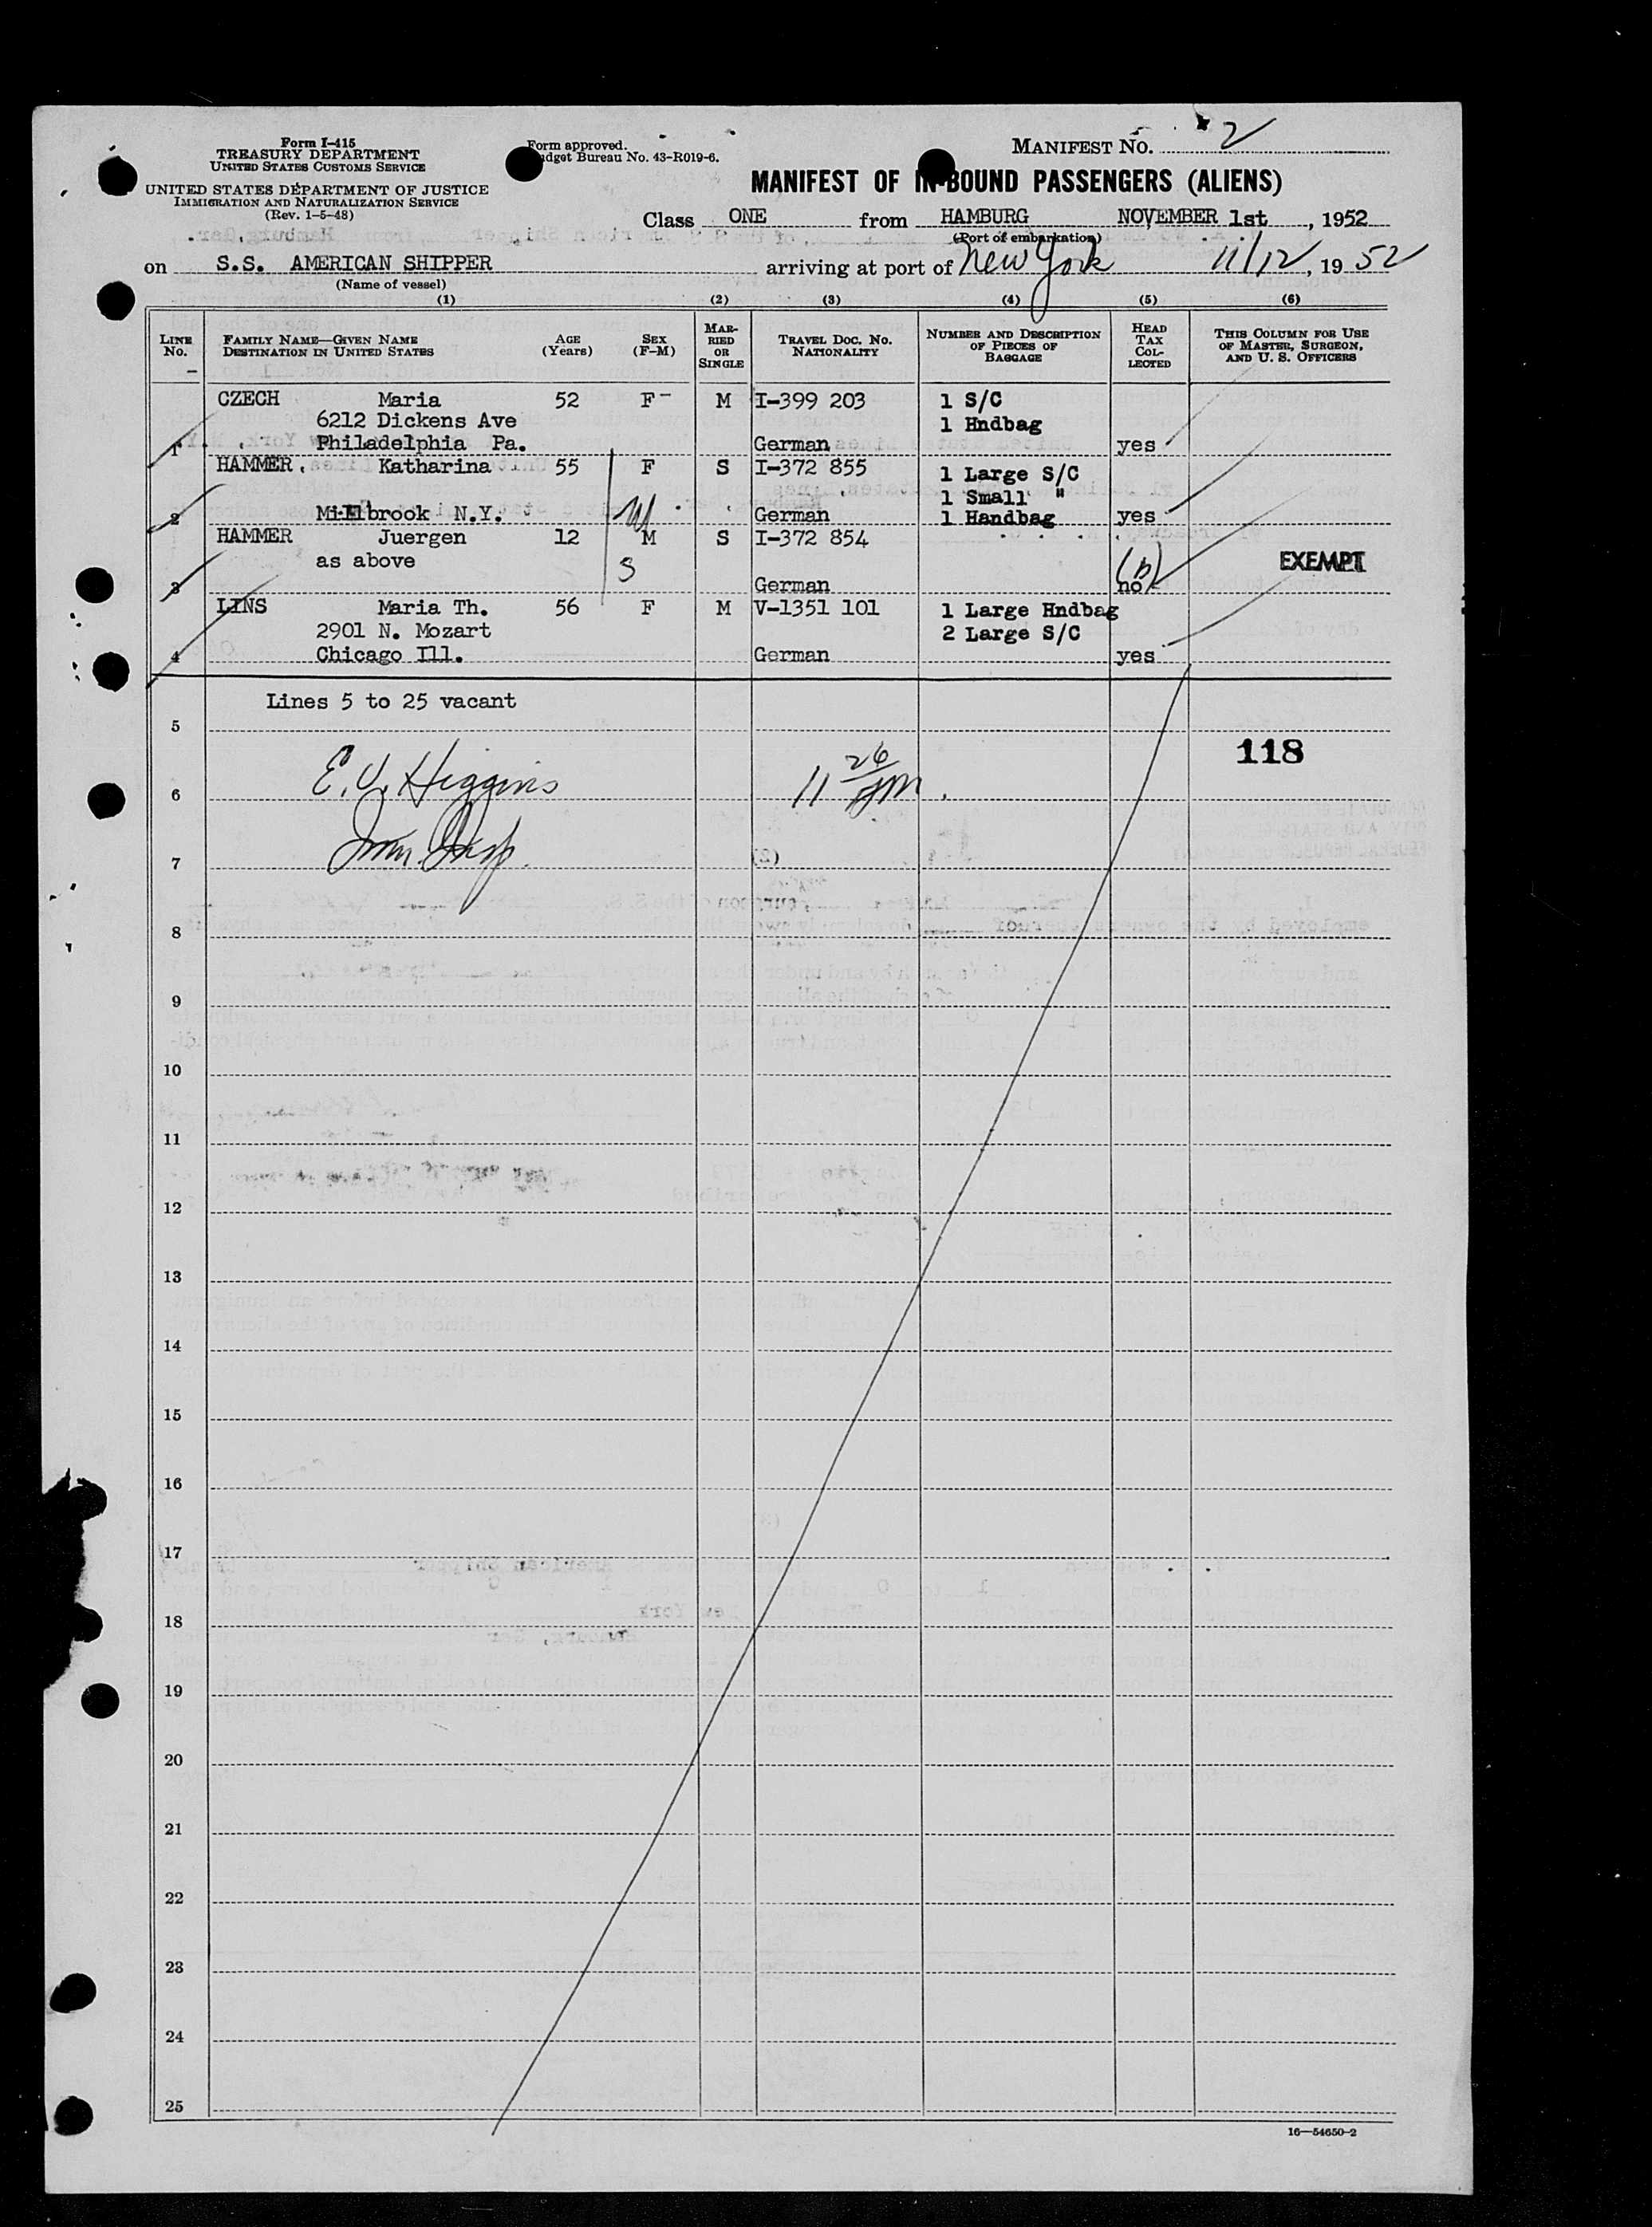 Form I-415
TREASURY DEPARTMENT
UNITED STATES CUSTOMS SERVICE
UNITED STATES DEPARTMENT OF JUSTICE
IMMIGRATION AND NATURALIZATION SERVICE
(Rev. 1-5-48)
Form approved.
dget Bureau No. 43-R019-6.
MANIFEST NO. 2
MANIFEST OF IN-BOUND PASSENGERS (ALIENS)
Class ONE from HAMBURG NOVEMBER 1st, 1952
(Port of embarkation)
on S.S. AMERICAN SHIPPER arriving at port of New York 11/12, 1952
(Name of vessel)
(1) (2) (3) (4) (5) (6)
LINE No. FAMILY NAME—GIVEN NAME DESTINATION IN UNITED STATES AGE (Years) SEX (F-M) MARRIED OR SINGLE TRAVEL DOC. NO. NATIONALITY NUMBER AND DESCRIPTION OF PIECES OF BAGGAGE HEAD TAX COLLECTED THIS COLUMN FOR USE OF MASTER, SURGEON, AND U. S. OFFICERS
CZECH Maria 52 F- M I-399 203 1 S/C
6212 Dickens Ave 1 Hndbag
1 Philadelphia Pa. German yes
HAMMER, Katharina 55 F S I-372 855 1 Large S/C
1 Small "
2 Millbrook N.Y. W German 1 Handbag yes
HAMMER Juergen 12 M S I-372 854
as above S EXEMPT
3 German no
LINS Maria Th. 56 F M V-1351 101 1 Large Hndbag
2901 N. Mozart 2 Large S/C
4 Chicago Ill. German yes
Lines 5 to 25 vacant
5
118
E.V. Higgins 11 26 AM
6
Imm. Insp.
7 (2)
8
9
10
11
12
13
14
15
16
17
18
19
20
21
22
23
24
25
16—54650-2